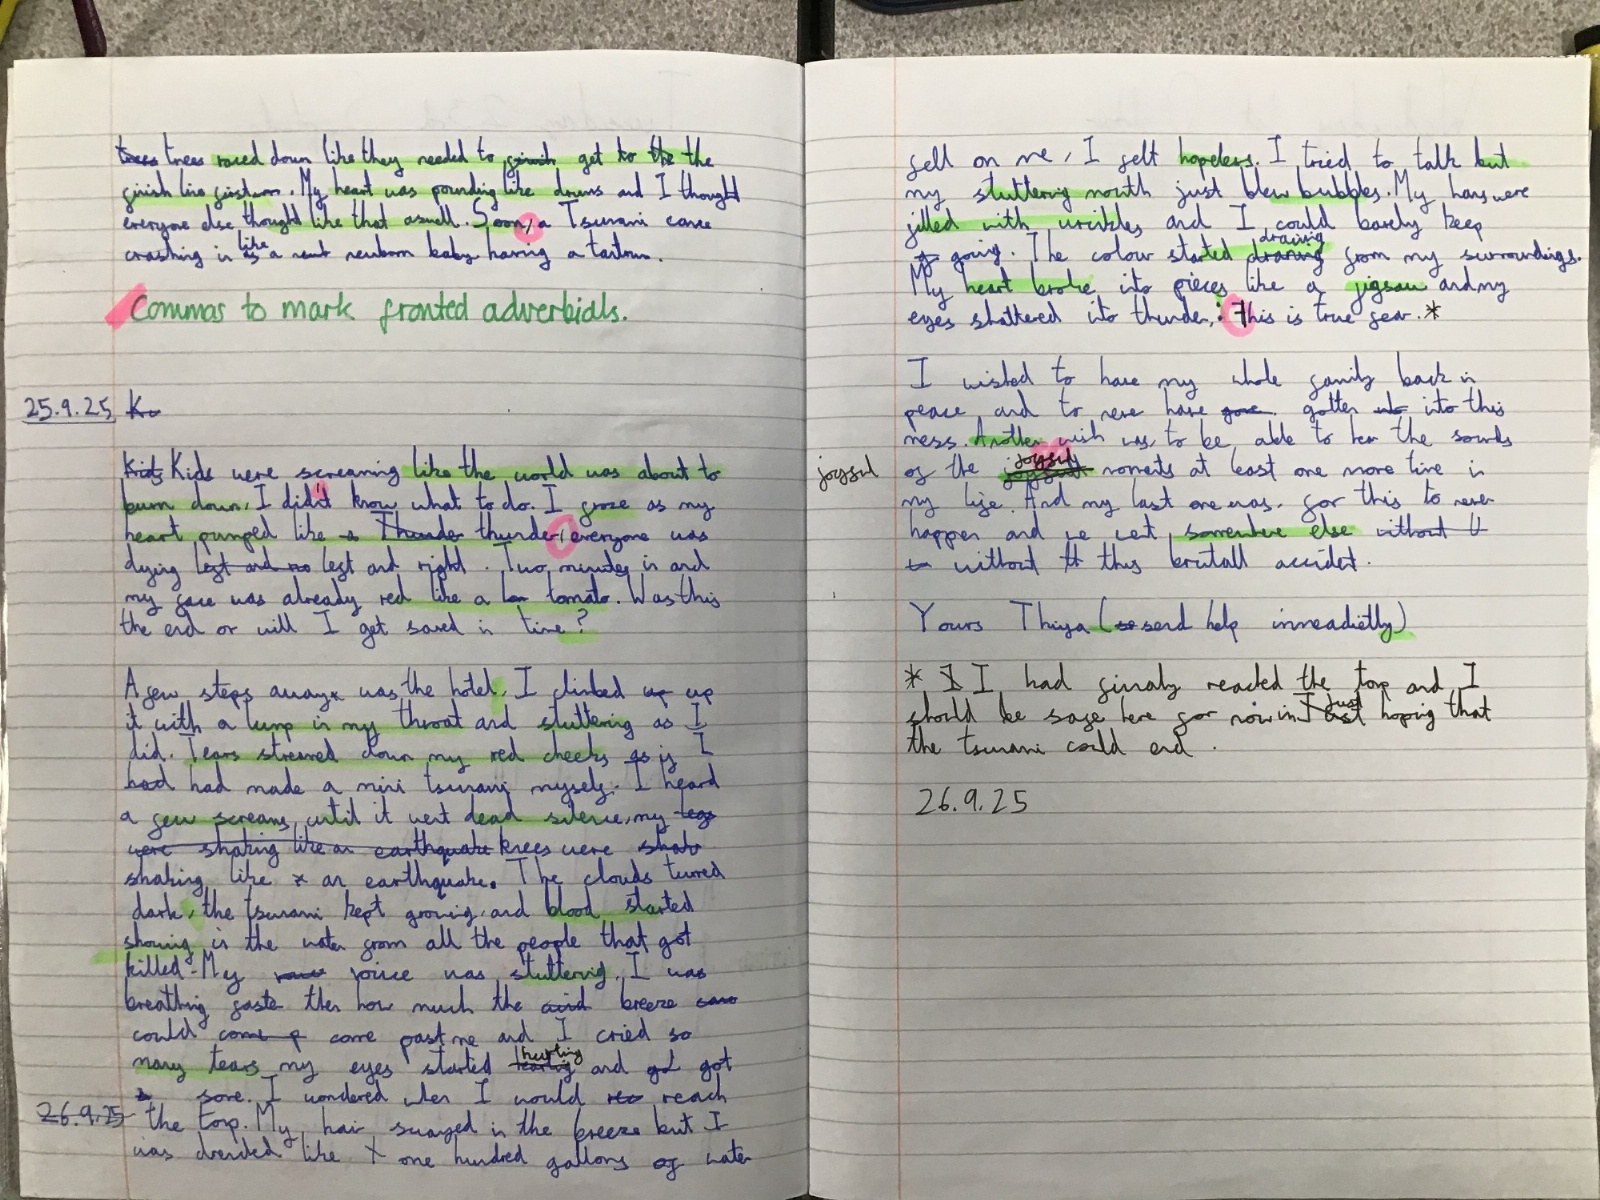 trees raced down like they needed to finish get to the the
finish line first. My heart was pounding like drums and I thought
everyone else thought like that aswell. Soon, a Tsunami came
crashing in like a newborn baby having a tantrum.
Commas to mark fronted adverbials.
25.9.25
Kids Kids were screaming like the world was about to
burn down, I didn't know what to do. I froze as my
heart pumped like a Thunder thunder, everyone was
dying left and left and right. Two minutes in and
my face was already red like a tomato. Was this
the end or will I get saved in time?
A few steps away was the hotel, I climbed up up
it with a lump in my throat and stuttering as I
did. Tears streamed down my red cheeks as if I
had had made a mini tsunami myself. I heard
a few screams until it went dead silence, my legs
were shaking like an earthquake knees were
shaking like an earthquake. The clouds turned
dark, the tsunami kept growing, and blood started
showing in the water from all the people that got
killed. My voice was stuttering, I was
breathing faste then how much the breeze
could come come past me and I cried so
many tears my eyes started hurting and got
sore. I wondered when I would reach
26.9.25 the Torp. My hair swayed in the breeze but I
was drended like one hundred gallons of water
fell on me, I felt hopeless. I tried to talk but
my stuttering mouth just blew bubbles. My hans were
filled with wrinkles and I could barely keep
going. The colour started draining from my surroundings.
My heart broke into pieces like a jigsaw and my
eyes shattered into thunder, This is true fear.*
I wished to have my whole family back in
peace and to neve have gotten into this
mess. Another wish was, to be able to hear the sounds
joyful of the joyful moments at least one more time in
my life. And my last one was, for this to never
happen and we went somewhere else without
without this brutall accident.
Yours Thiya (send help immeadietly)
* I I had finaly reached the torp and I
should be safe here for now im just hoping that
the tsunami could end.
26.9.25